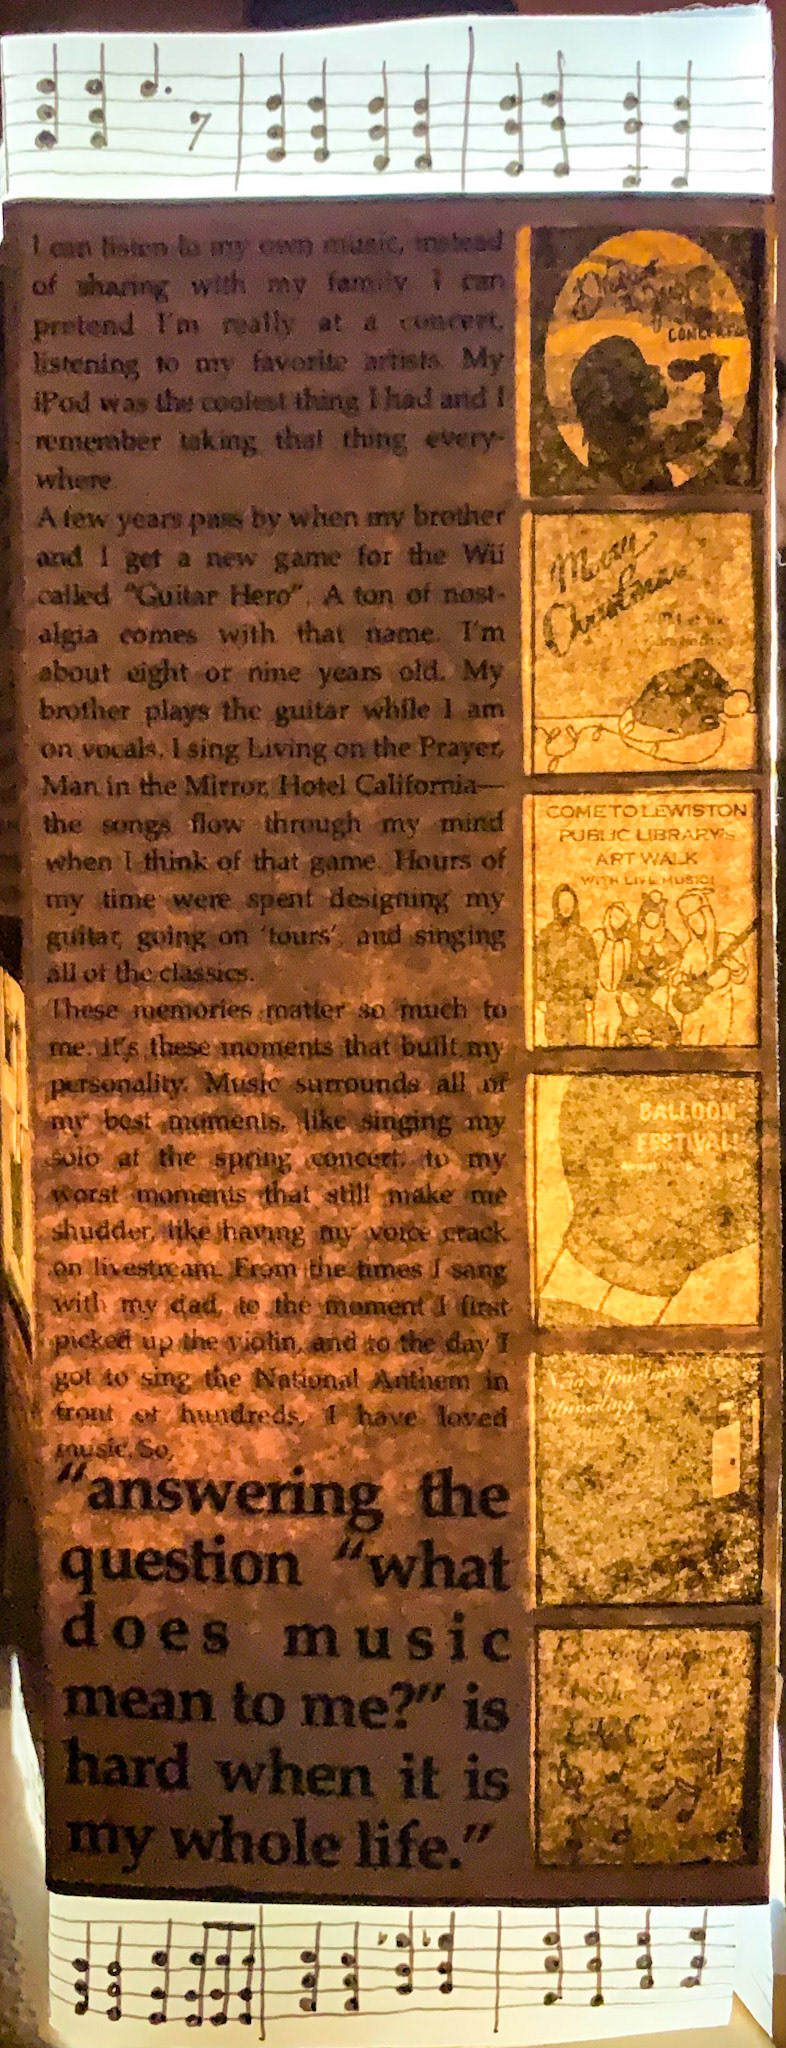 I can listen to my own music, instead
of sharing with my family I can
pretend I'm really at a concert,
listening to my favorite artists. My
iPod was the coolest thing I had and I
remember taking that thing every-
where
A few years pass by when my brother
and I get a new game for the Wii
called "Guitar Hero". A ton of nost-
algia comes with that name. I'm
about eight or nine years old. My
brother plays the guitar while I am
on vocals. I sing Living on the Prayer,
Man in the Mirror, Hotel California—
the songs flow through my mind
when I think of that game. Hours of
my time were spent designing my
guitar, going on 'tours', and singing
all of the classics.
These memories matter so much to
me. it's these moments that built my
personality. Music surrounds all of
my best moments, like singing my
solo at the spring concert, to my
worst moments that still make me
shudder, like having my voice crack
on livestream. From the times I sang
with my dad, to the moment I first
picked up the violin, and to the day I
got to sing the National Anthem in
front of hundreds, I have loved
music. So,
"answering the
question "what
does music
mean to me?" is
hard when it is
my whole life."
Merry
Christmas
COME TO LEWISTON
PUBLIC LIBRARY'S
ART WALK
WITH LIVE MUSIC!
BALLOON
FESTIVAL!